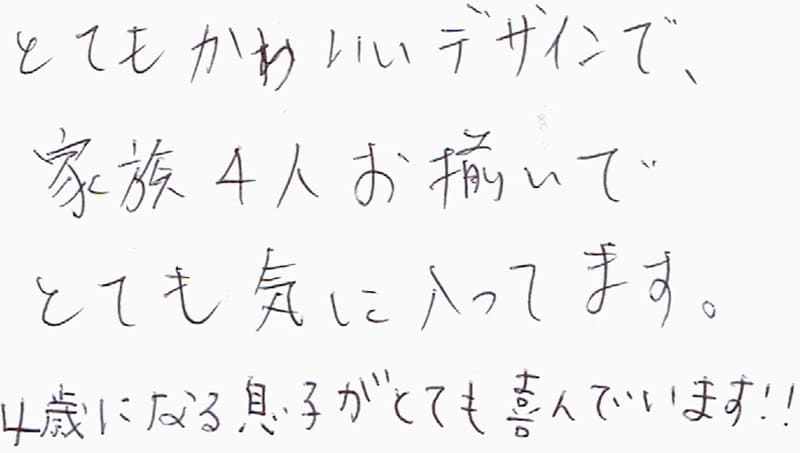 とてもかわいいデザインで、
家族4人お揃いで
とても気に入ってます。
4歳になる息子がとても喜んでいます!!